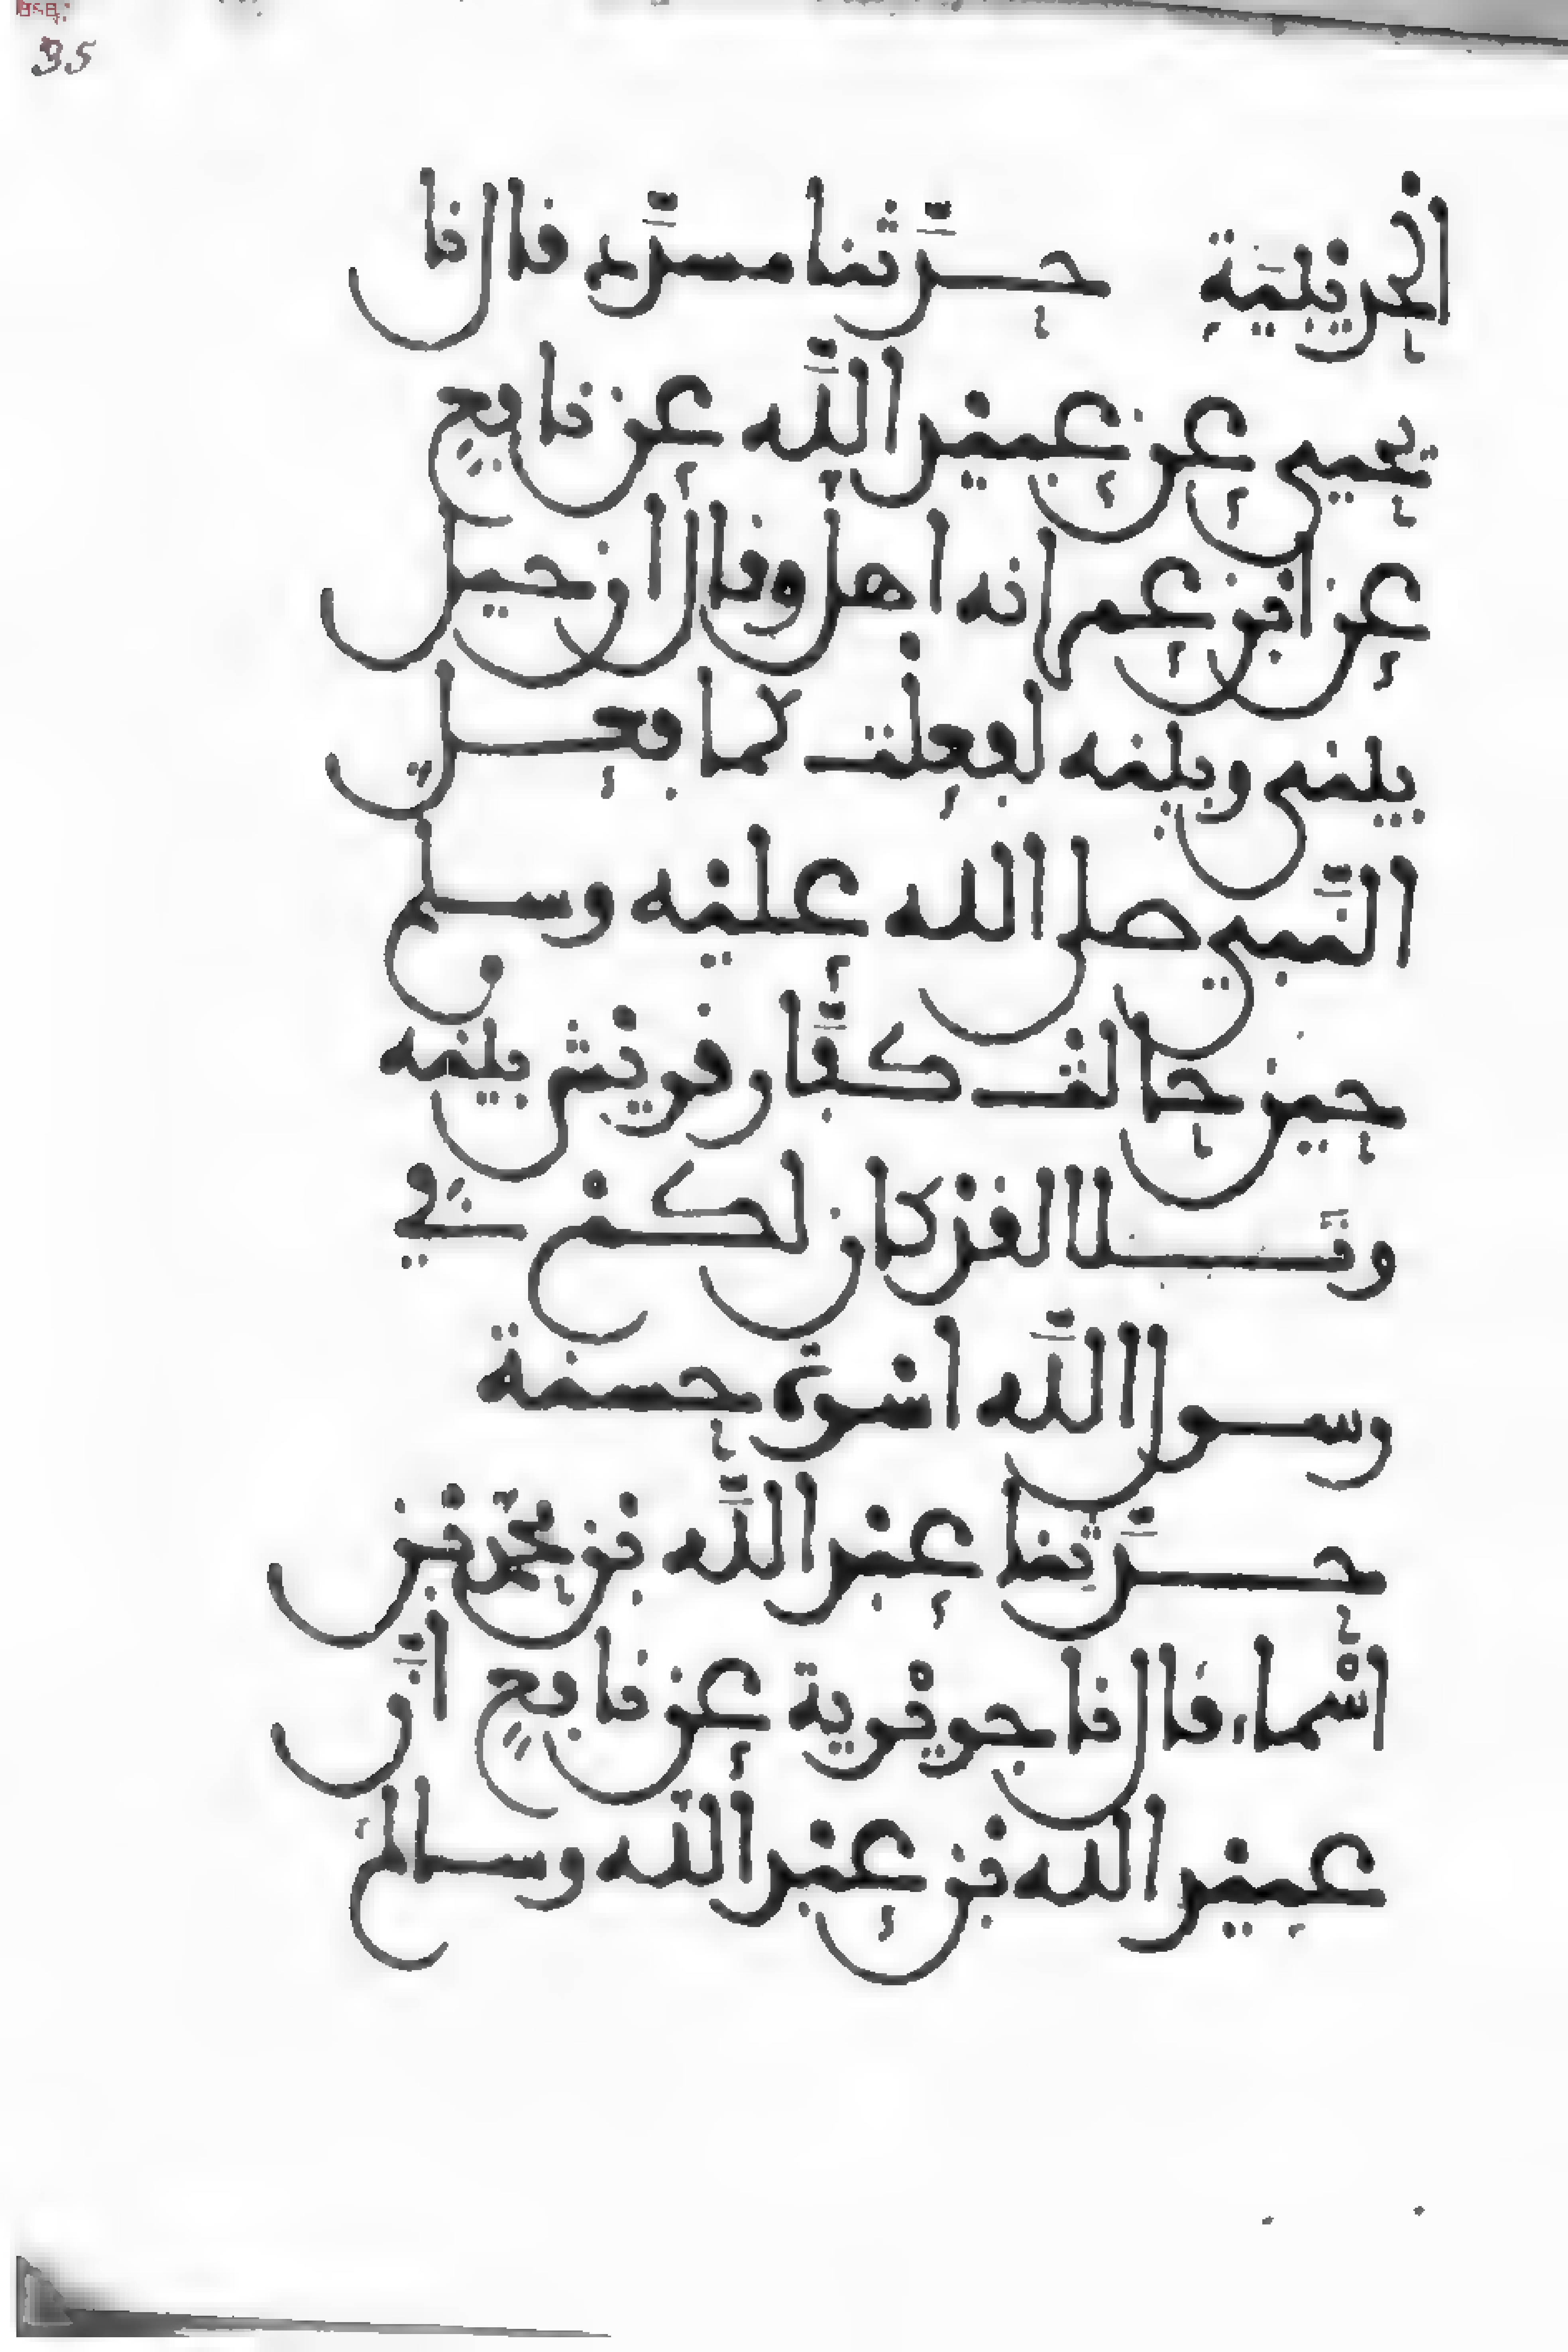 35
الحديبية حدّثنا مسدّد قال نا
يحيى عن عبيد الله عن نافع
عن ابن عمر انه اهل وقال ان حيل
بيني وبينه لفعلت كما فعل
النّبي صلى الله عليه وسلم
حين حالت كفّار قريش بينه
وتلا لقد كان لكم في
رسول الله اسْوة حسنة
حدّثنا عبد الله بن محمد بن
اسْماء قال نا جويْرية عن نافع انّ
عبيد الله بن عبد الله وسالم